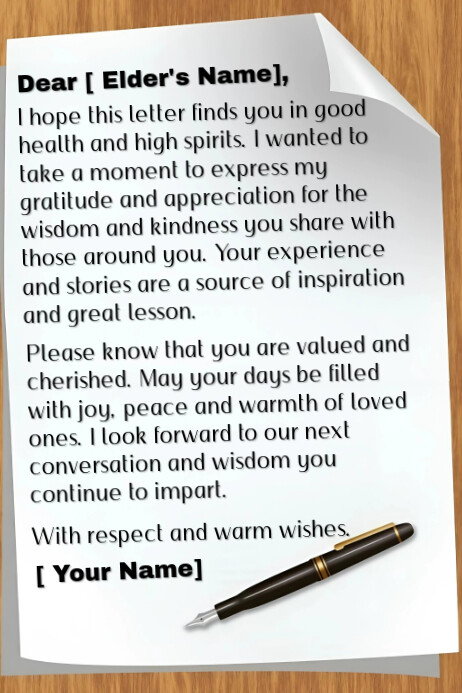 Dear [ Elder's Name],
I hope this letter finds you in good
health and high spirits. I wanted to
take a moment to express my
gratitude and appreciation for the
wisdom and kindness you share with
those around you. Your experience
and stories are a source of inspiration
and great lesson.
Please know that you are valued and
cherished. May your days be filled
with joy, peace and warmth of loved
ones. I look forward to our next
conversation and wisdom you
continue to impart.
With respect and warm wishes.
[ Your Name]